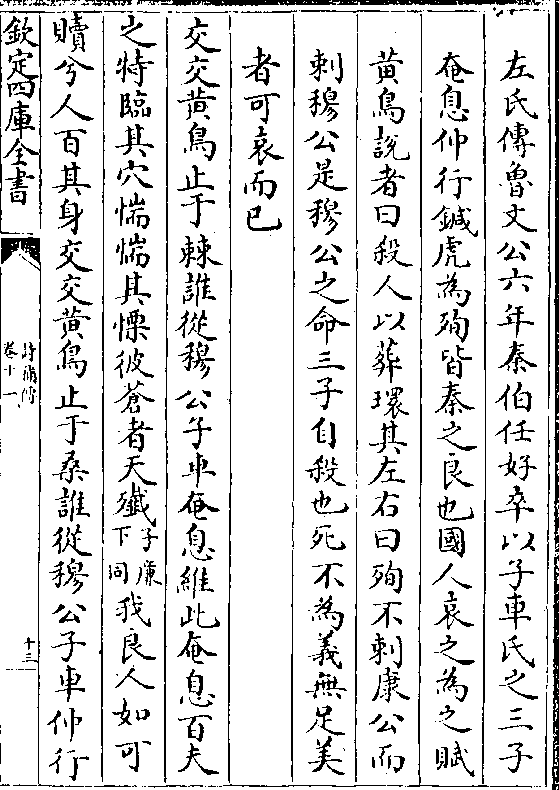 左氏傳魯文公六年秦伯任好卒以子車氏之三子
奄息仲行鍼虎為殉皆秦之良也國人哀之為之賦
黄鳥說者曰殺人以葬環其左右曰殉不刺康公而
刺穆公是穆公之命三子自殺也死不為義無足美
者可哀而已
交交黄鳥止于棘誰從穆公子車奄息維此奄息百夫
之特臨其穴惴惴其慄彼蒼者天殲子廉下同我良人如可
贖兮人百其身交交黄鳥止于桑誰從穆公子車仲行
欽定四庫全書
詩補傳
卷十一
十三